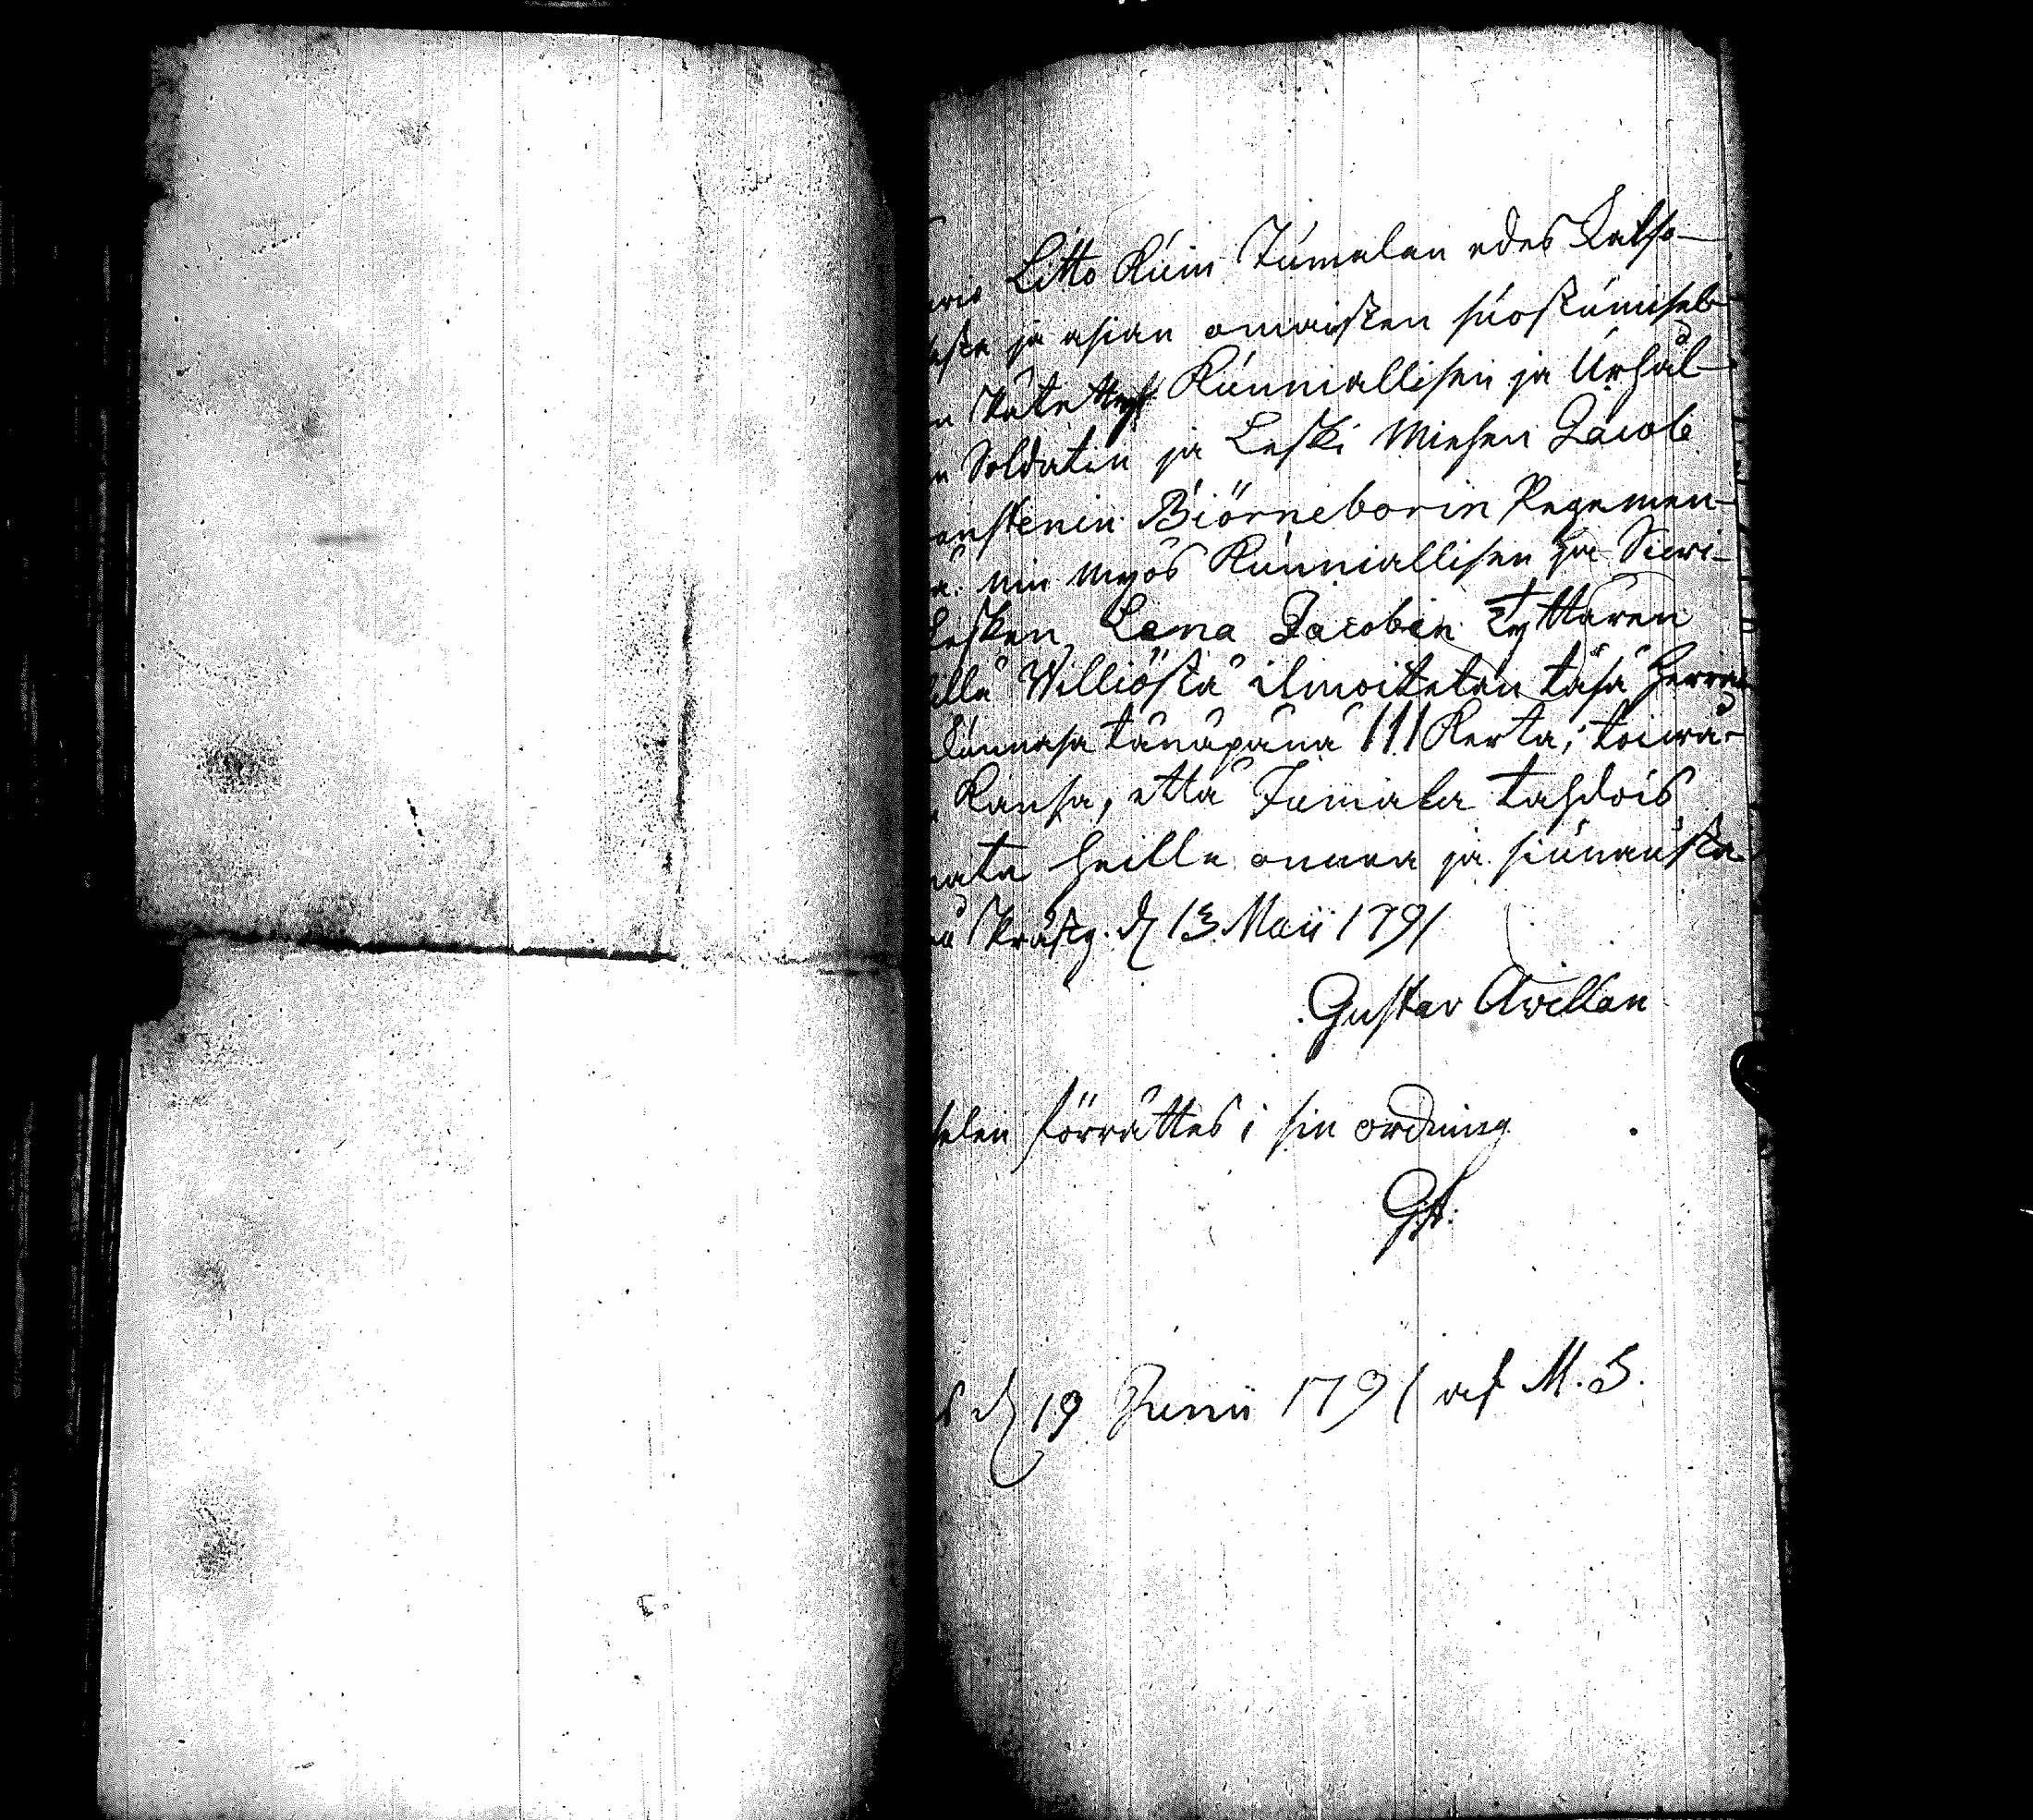 Litto Kuin Jumalan edes Katso-
ja asian omaisten suostumisel-
Kunniallisen ja Urhål-
Soldatin ja Leski Miehen Jacob
Biörneborin Regemen-
nin myös Kunniallisen ja Siwi-
Lesken Lena Jacobin Tyttären
Williöstä ilmoitetan täsä Herran
tänäpänä III Kerta; toiwo-
Kansa, että Jumala tahdois
heille onnea ja siunausta.
Prästg. d 13 Maii 1791
Gustav Avellan
förrättes i sin ordning
d 19 Junii 1791 af M. S.